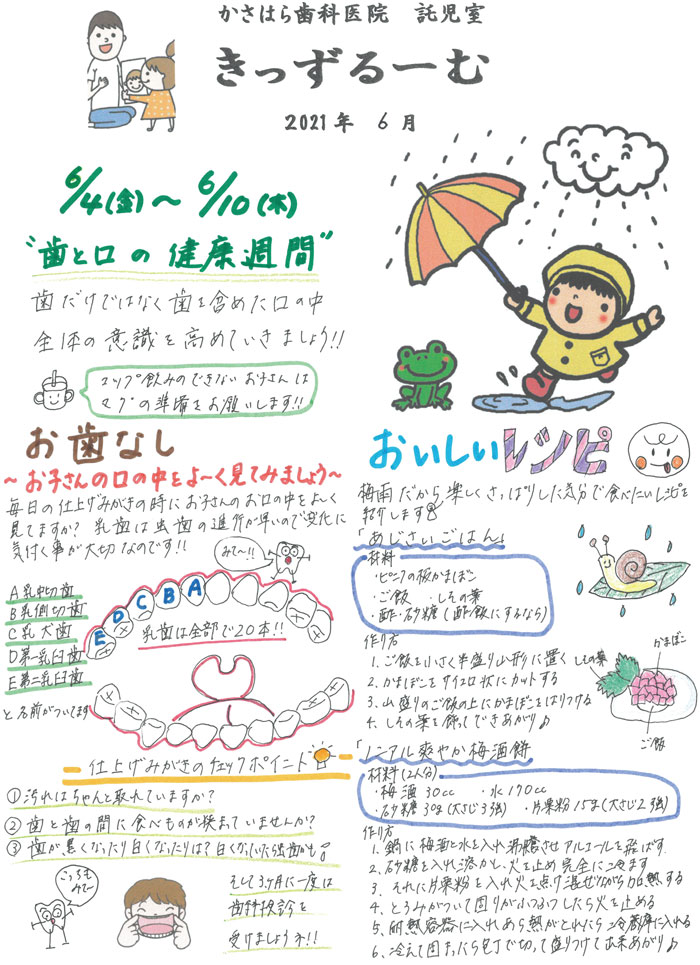 かさはら歯科医院 託児室
きっずるーむ
2021年 6月
6/4(金)～6/10(木)
"歯と口の健康週間"
歯だけではなく歯を含めた口の中
全体の意識を高めていきましょう!!
コップ飲みのできないお子さんは
マグの準備をお願いします!!
お歯なし
～お子さんの口の中をよ～く見てみましょう～
毎日の仕上げみがきの時にお子さんのお口の中をよーく
見てますか? 乳歯は虫歯の進行が早いので変化に
気付く事が大切なのです!!
みて～!!
A乳中切歯
B乳側切歯
C乳犬歯
D第一乳臼歯
E第二乳臼歯
と名前がついてます
E D C B A
乳歯は全部で20本!!
仕上げみがきのチェックポイント
①汚れはちゃんと取れていますか?
②歯と歯の間に食べものが挟まっていませんか?
③歯が黒くなったり白くなったりは?白くなっていたら虫歯かも!
こっちもみて～
そして3ヶ月に一度は
歯科検診を
受けましょうネ!!
おいしいレシピ
梅雨だから楽しくさっぱりした気分で食べたいレシピを
紹介します
「あじさいごはん」
材料
・ピンクの板かまぼこ
・ご飯 ・しその葉
・酢・砂糖(酢飯にするなら)
作り方
1、ご飯を小さく半盛り山形に置く
2、かまぼこをサイコロ状にカットする
3、山盛りのご飯の上にかまぼこをはりつける
4、しその葉を飾ってできあがり♪
しその葉
かまぼこ
ご飯
「ノンアル爽やか梅酒餅」
材料(2人分)
・梅酒 30cc ・水 170cc
・砂糖 30g(大さじ3強) ・片栗粉 15g(大さじ2強)
作り方
1、鍋に梅酒と水を入れ沸騰させアルコールを飛ばす
2、砂糖を入れ溶かし、火を止め完全に冷ます
3、それに片栗粉を入れ火を点け混ぜながら加熱する
4、とろみがついて周りがふつふつしたら火を止める
5、耐熱容器に入れあら熱がとれたら冷蔵庫に入れる
6、冷えて固まったら包丁で切って盛りつけて出来あがり♪